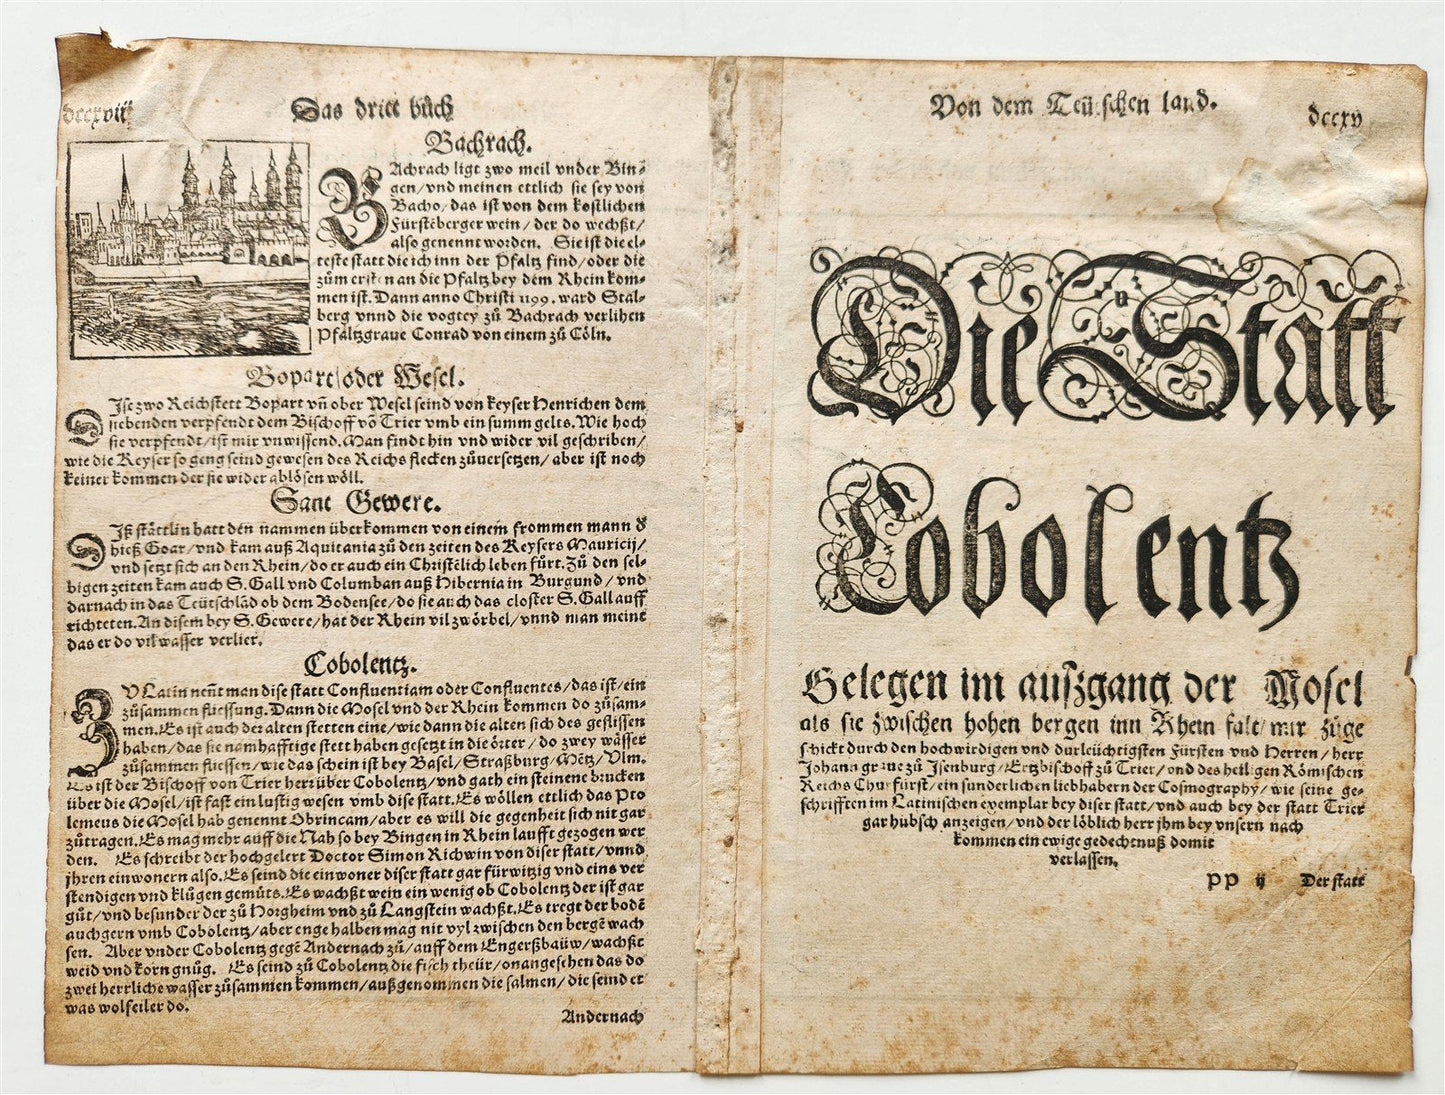 dccxviij
Das dritt bůch
Bachrach.
BAchrach ligt zwo meil vnder Bin-
gen/vnd meinen ettlich sie sey von
Bacho/das ist von dem kostlichen
Fürstẽberger wein/ der do wechßt/
also genennt worden. Sie ist die el-
teste statt die ich inn der Pfaltz find/oder die
zům ersten an die Pfaltz bey dem Rhein kom-
men ist. Dann anno Christi 1199. ward Stal-
berg vnnd die vogtey zů Bachrach verlihen
Pfaltzgraue Conrad von einem zů Cöln.
Bopart oder Wesel.
DIse zwo Reichstett Bopart vñ ober Wesel seind von keyser Henrichen dem
siebenden verpfendt dem Bischoff võ Trier vmb ein summ gelts. Wie hoch
sie verpfendt/ist mir vnwissend. Man findt hin vnd wider vil geschriben/
wie die Keyser so geng seind gewesen des Reichs flecken zůuersetzen/ aber ist noch
keiner kommen der sie wider ablösen wöll.
Sant Gewere.
DIß stättlin hatt den nammen überkommen von einem frommen mann d
hieß Goar/vnd kam auß Aquitania zů den zeiten des Keysers Mauricij/
vnd setzt sich an den Rhein/do er auch ein Christẽlich leben fürt. Zů den sel-
bigen zeiten kam auch S. Gall vnd Columban auß Hibernia in Burgund/ vnd
darnach in das Teütschlãd ob dem Bodensee/do sie auch das closter S. Gall auff
richteten. An disem bey S. Gewere/hat der Rhein vil zwörbel/vnnd man meint
das er do vil wasser verlier.
Cobolentz.
ZV Latin neñt man dise statt Confluentiam oder Confluentes/das ist/ein
zůsammen fliessung. Dann die Mosel vnd der Rhein kommen do zůsam-
men. Es ist auch der alten stetten eine/wie dann die alten sich des geflissen
haben/das sie namhafftige stett haben gesetzt in die örter/ do zwey wässer
zůsammen fliessen/wie das schein ist bey Basel/Straßburg/Mẽtz/Vlm.
Es ist der Bischoff von Trier herr über Cobolentz/vnd gath ein steinene brucken
über die Mosel/ist fast ein lustig wesen vmb dise statt. Es wöllen ettlich das Pto
lemeus die Mosel hab genennt Obrincam/aber es will die gegenheit sich nit gar
zůtragen. Es mag mehr auff die Nah so bey Bingen in Rhein laufft gezogen wer
den. Es schreibt der hochgelert Doctor Simon Richwin von diser statt/vnnd
jhren einwonern also. Es seind die einwoner diser statt gar fürwitzig vnd eins ver
stendigen vnd klůgen gemůts. Es wachßt wein ein wenig ob Cobolentz der ist gar
gůt/vnd besunder der zů Horgheim vnd zů Langstein wachßt. Es tregt der bodẽ
auch gern vmb Cobolentz/aber enge halben mag nit vyl zwischen den bergẽ wach
sen. Aber vnder Cobolentz gegẽ Andernach zů/auff dem Engerßbaüw/wachßt
weid vnd korn gnůg. Es seind zů Cobolentz die fisch theür/onangesehen das do
zwei herrliche wasser zůsammen kommen/außgenommen die salmen/die seind et
was wolfeiler do.
Andernach
Von dem Teütschen land.
dccxv
Die Statt
Cobolentz
Gelegen im außgang der Mosel
als sie zwischen hohen bergen inn Rhein falt/mir zůge
schickt durch den hochwirdigen vnd durleüchtigsten Fürsten vnd Herren/ herr
Johann graue zů Jsenburg/Ertzbischoff zů Trier/vnd des heiligen Römischen
Reichs Churfürst/ein sunderlichen liebhabern der Cosmography/wie seine ge-
schrifften im Latinischen exemplar bey diser statt/vnd auch bey der statt Trier
gar hubsch anzeigen/vnd der löblich herr jhm bey vnsern nach
kommen ein ewige gedechtnuß domit
verlassen.
pp ij Der statt